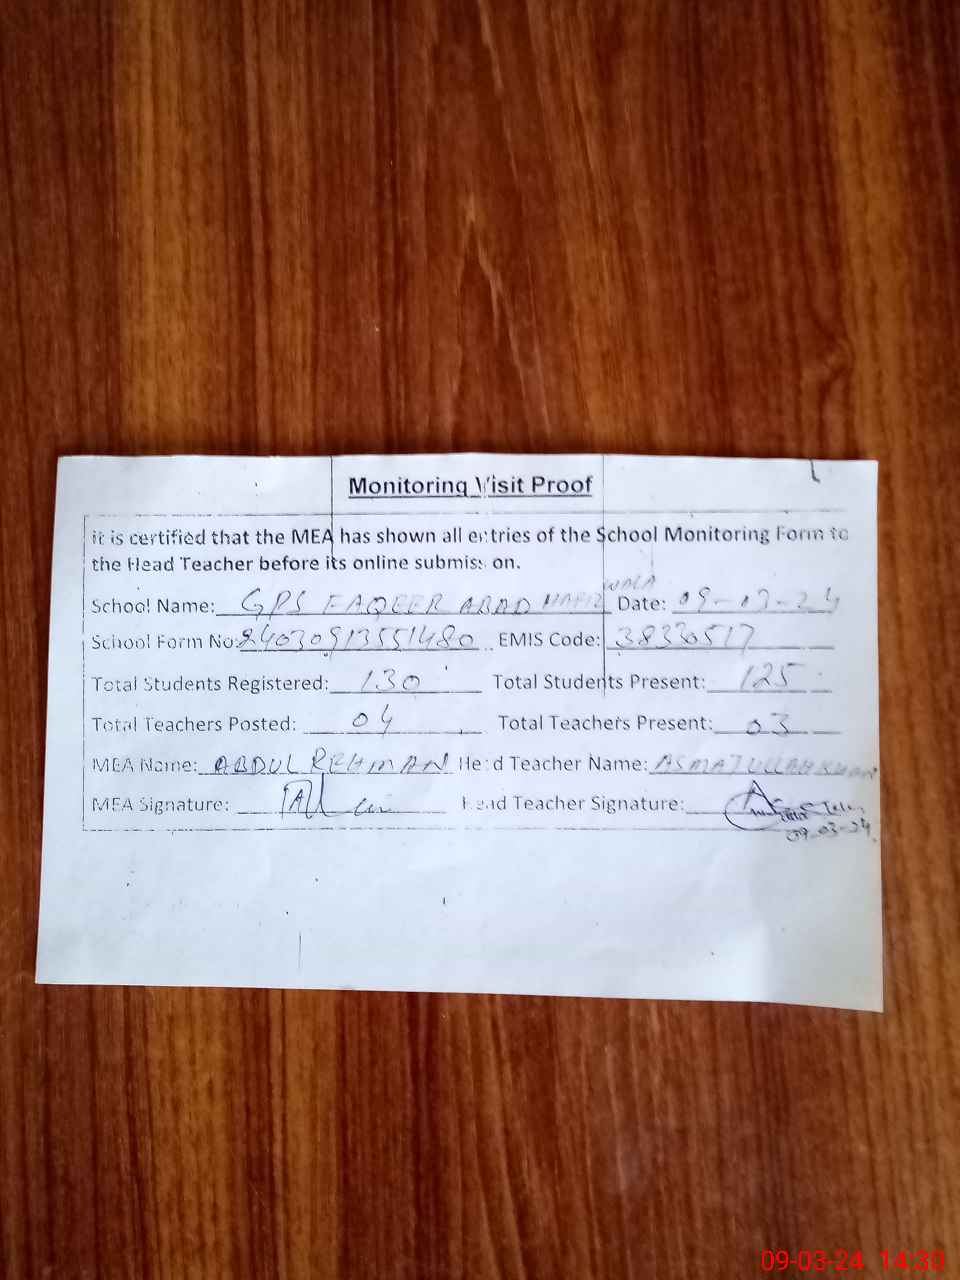 Monitoring Visit Proof
it is certified that the MEA has shown all entries of the School Monitoring Form to
the Head Teacher before its online submission.
WALA
School Name: GPS FAQEER ABAD HAFIZ Date: 09-03-24
School Form No: 24030913551480 EMIS Code: 38330517
Total Students Registered: 130 Total Students Present: 125
Total Teachers Posted: 04 Total Teachers Present: 03
MEA Name: ABDUL REHMAN Head Teacher Name: ASMATULLAH KHAN
MEA Signature: Head Teacher Signature:
09-03-24
09-03-24 14:30